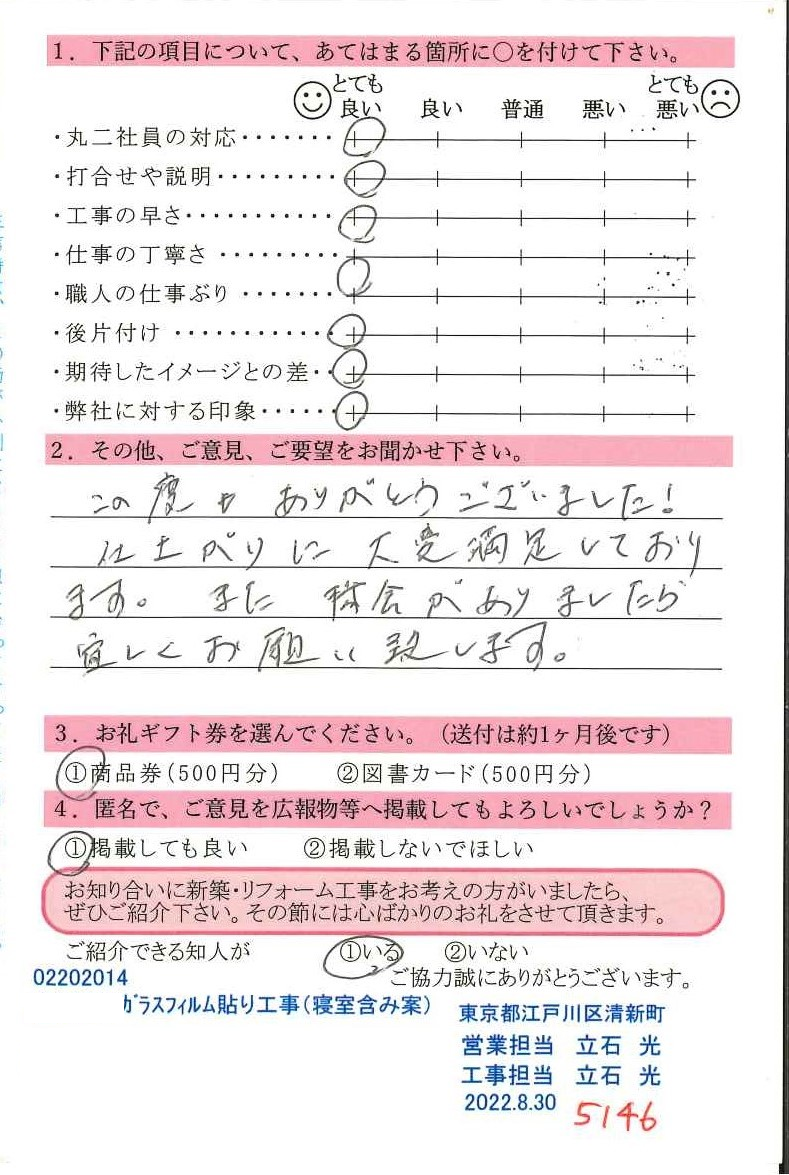 1. 下記の項目について、あてはまる箇所に○を付けて下さい。
とても良い 良い 普通 悪い とても悪い
・丸二社員の対応・・・・・・・
・打合せや説明・・・・・・・・・
・工事の早さ・・・・・・・・・・・
・仕事の丁寧さ・・・・・・・・・
・職人の仕事ぶり・・・・・・・
・後片付け・・・・・・・・・・・・
・期待したイメージとの差・・
・弊社に対する印象・・・・・・
2. その他、ご意見、ご要望をお聞かせ下さい。
この度も ありがとうございました!
仕上がりに 大変満足しており
ます。 また 機会がありましたら
宜しくお願い致します。
3. お礼ギフト券を選んでください。(送付は約1ヶ月後です)
①商品券(500円分) ②図書カード(500円分)
4. 匿名で、ご意見を広報物等へ掲載してもよろしいでしょうか?
①掲載しても良い ②掲載しないでほしい
お知り合いに新築・リフォーム工事をお考えの方がいましたら、
ぜひご紹介下さい。その節には心ばかりのお礼をさせて頂きます。
ご紹介できる知人が ①いる ②いない
02202014 ご協力誠にありがとうございます。
ｶﾞﾗｽﾌｨﾙﾑ貼り工事(寝室含み案) 東京都江戸川区清新町
営業担当 立石 光
工事担当 立石 光
2022.8.30 5146